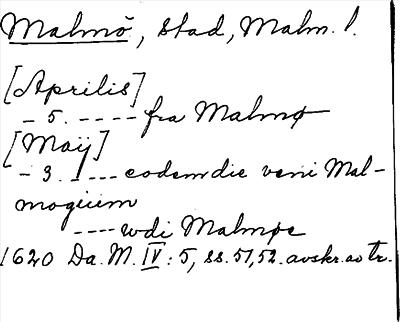 Malmö, Stad, Malm. l.
[Aprilis]
- 5. - - - - - fra Malmø
[Maij]
- 3. - - - - eodem die veni Mal-
mogium
- - - - udi Malmøe
1620 Da. M. IV: 5, ss. 51, 52. avskr. av tr.